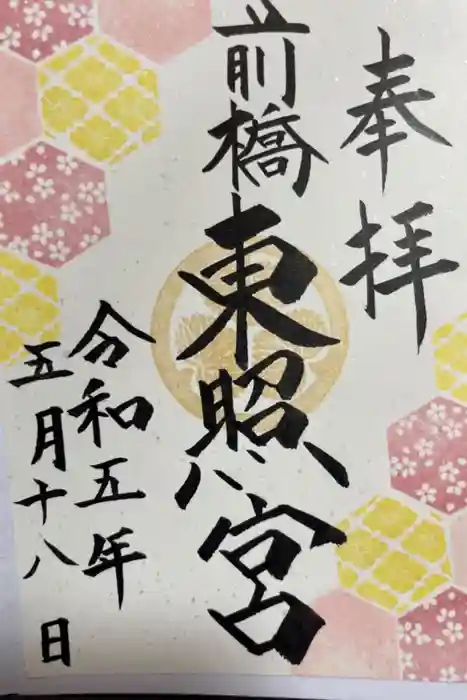 奉拝
前橋
東照宮
令和五年
五月十八日